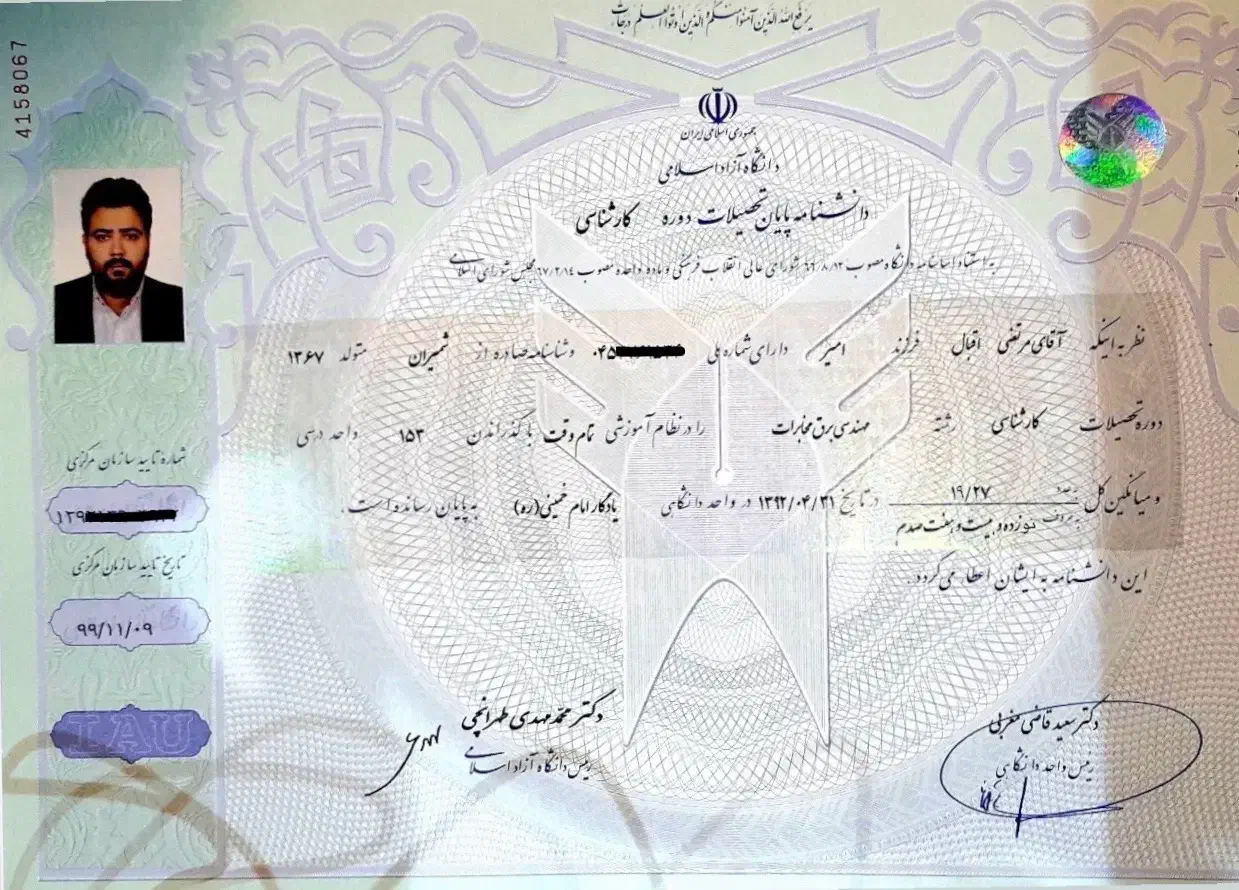 یرفع الله الذین آمنوا منکم الذین اوتوا العلم درجات
جمهوری اسلامی ایران
دانشگاه آزاد اسلامی
دانشنامه پایان تحصیلات دوره کارشناسی
به استناد اساسنامه دانشگاه مصوب ۶۶/۸/۱۲ شورای عالی انقلاب فرهنگی و ماده واحده مصوب ۶۷/۲/۱۴ مجلس شورای اسلامی
نظر به اینکه آقای مرتضی اقبال فرزند امیر دارای شماره ملی ۰۴۵ و شناسنامه صادره از شمیران متولد ۱۳۶۷
دوره تحصیلات کارشناسی رشته مهندسی برق مخابرات را در نظام آموزشی تمام وقت با گذراندن ۱۵۳ واحد درسی
و میانگین کل بعدد ۱۹/۲۷ در تاریخ ۱۳۹۲/۰۴/۳۱ در واحد دانشگاهی یادگار امام خمینی(ره) به پایان رسانده است.
بحروف نوزده و بیست و هفت صدم
این دانشنامه به ایشان اعطا می‌گردد.
دکتر سعید قاضی مغربی
رئیس واحد دانشگاهی
دکتر محمد مهدی طهرانچی
رئیس دانشگاه آزاد اسلامی
4158067
شماره تایید سازمان مرکزی
۱۳۹
تاریخ تایید سازمان مرکزی
۹۹/۱۱/۰۹
IAU